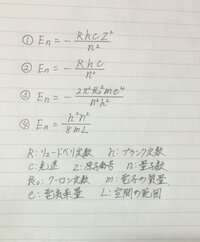 ① En = − RhcZ² / n²
② En = − Rhc / n²
③ En = − 2π²k₀²me⁴ / n²h²
④ En = h²n² / 8mL
R:リュードベリ定数 h:プランク定数
C:光速 Z:原子番号 n:量子数
k₀:クーロン定数 m:電子の質量
e:電気素量 L:空間の範囲